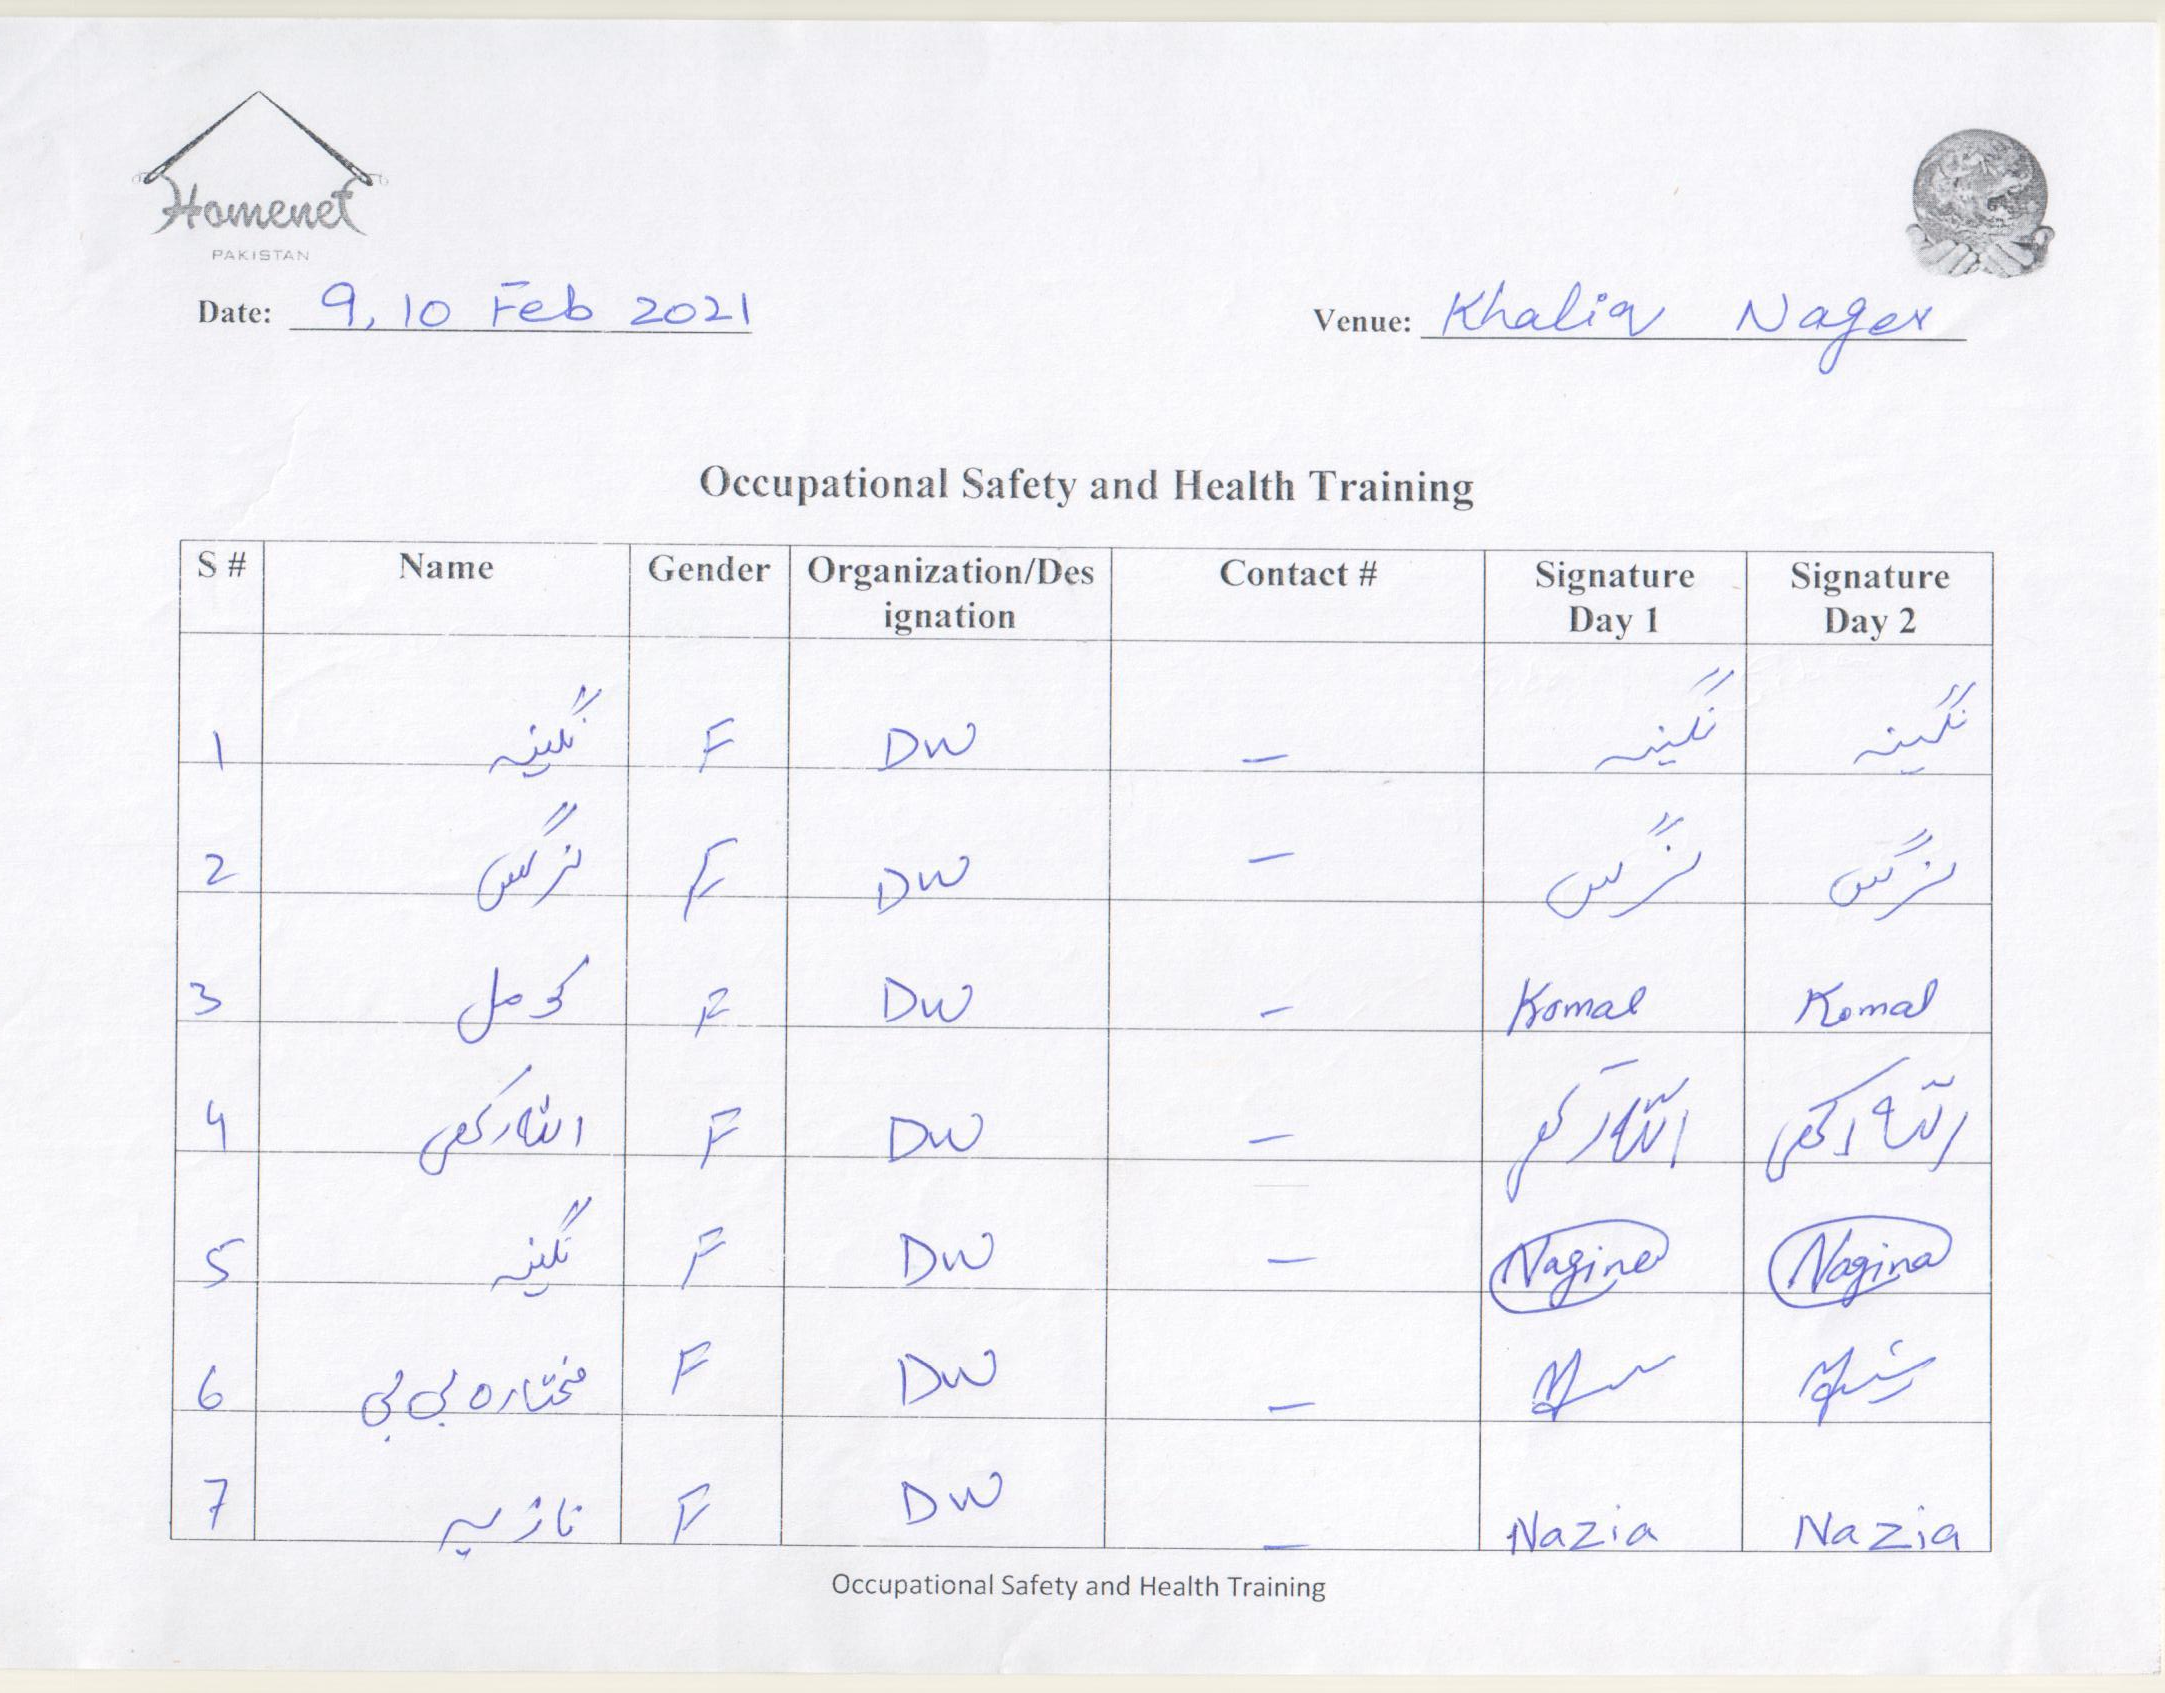 Homenet
PAKISTAN
Date: 9, 10 Feb 2021
Venue: Khaliq Nager
Occupational Safety and Health Training
S # Name Gender Organization/Des ignation Contact # Signature Day 1 Signature Day 2
1 نگینہ F DW – نگینہ نگینہ
2 نرگس F DW – نرگس نرگس
3 کومل F DW – Komal Komal
4 اللہ رکھی F DW – اللہ رکھی اللہ رکھی
5 نگینہ F DW – Nagina Nagina
6 مختارہ بی بی F DW –
7 نازیہ F DW – Nazia Nazia
Occupational Safety and Health Training